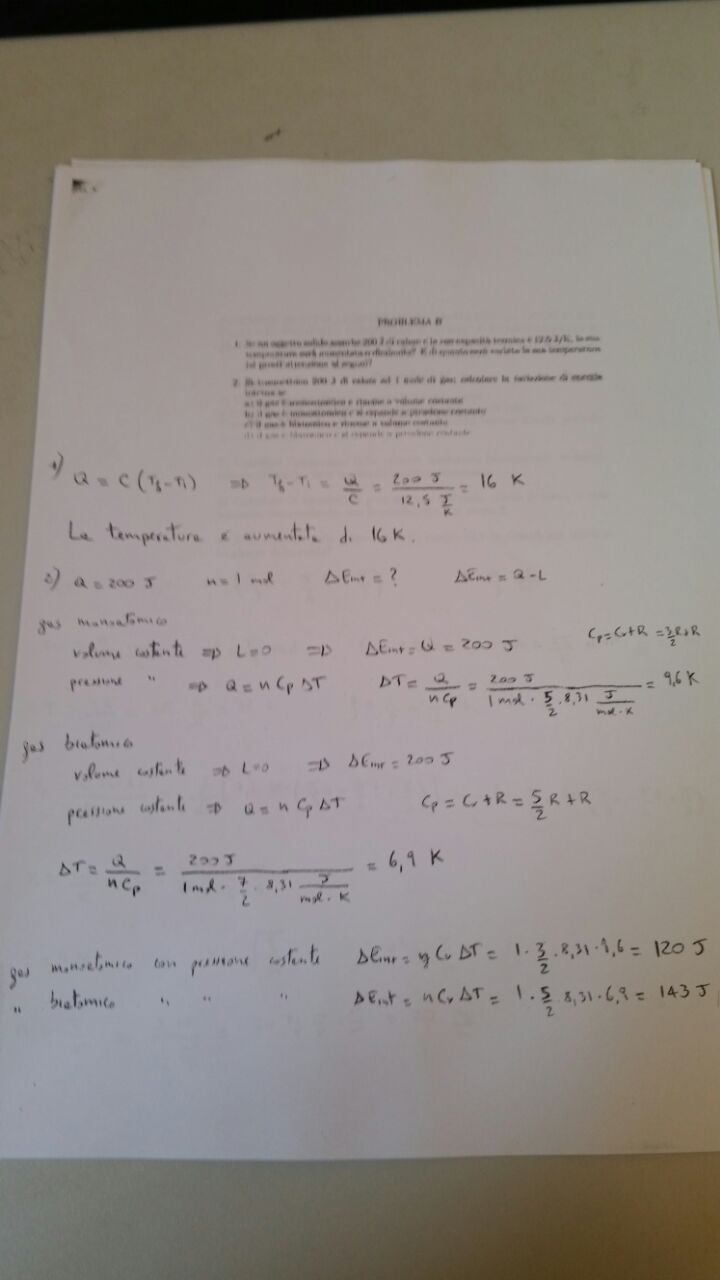 PROBLEMA B
1. Se un oggetto solido assorbe 200 J di calore e la sua capacità termica è 12.5 J/K, la sua
temperatura sarà aumentata o diminuita? E di quanto sarà variata la sua temperatura
2. Si trasmettono 200 J di calore ad 1 mole di gas; calcolare la variazione di energia
interna se
a) il gas è monoatomico e rimane a volume costante
b) il gas è monoatomico e si espande a pressione costante
c) il gas è biatomico e rimane a volume costante
d) il gas è biatomico e si espande a pressione costante
1) Q = C (Tf-Ti) ⇒ Tf-Ti = Q/C = 200 J / 12,5 J/K = 16 K
La temperatura è aumentata di 16 K.
2) Q = 200 J n = 1 mol ΔEint = ? ΔEint = Q - L
gas monoatomico
volume costante ⇒ L=0 ⇒ ΔEint = Q = 200 J Cp = Cv+R = 3/2 R+R
pressione " ⇒ Q = n Cp ΔT ΔT = Q/nCp = 200 J / 1 mol · 5/2 · 8,31 J/mol·K = 9,6 K
gas biatomico
volume costante ⇒ L=0 ⇒ ΔEint = 200 J
pressione costante ⇒ Q = n Cp ΔT Cp = Cv+R = 5/2 R + R
ΔT = Q/nCp = 200 J / 1 mol · 7/2 · 8,31 J/mol·K = 6,9 K
gas monoatomico con pressione costante ΔEint = n Cv ΔT = 1 · 3/2 · 8,31 · 9,6 = 120 J
" biatomico " " " ΔEint = n Cv ΔT = 1 · 5/2 8,31 · 6,9 = 143 J